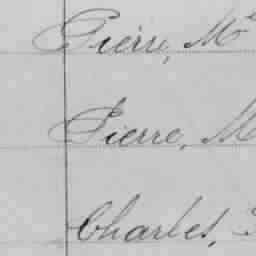 Pierre, M
Pierre, M
Charles,